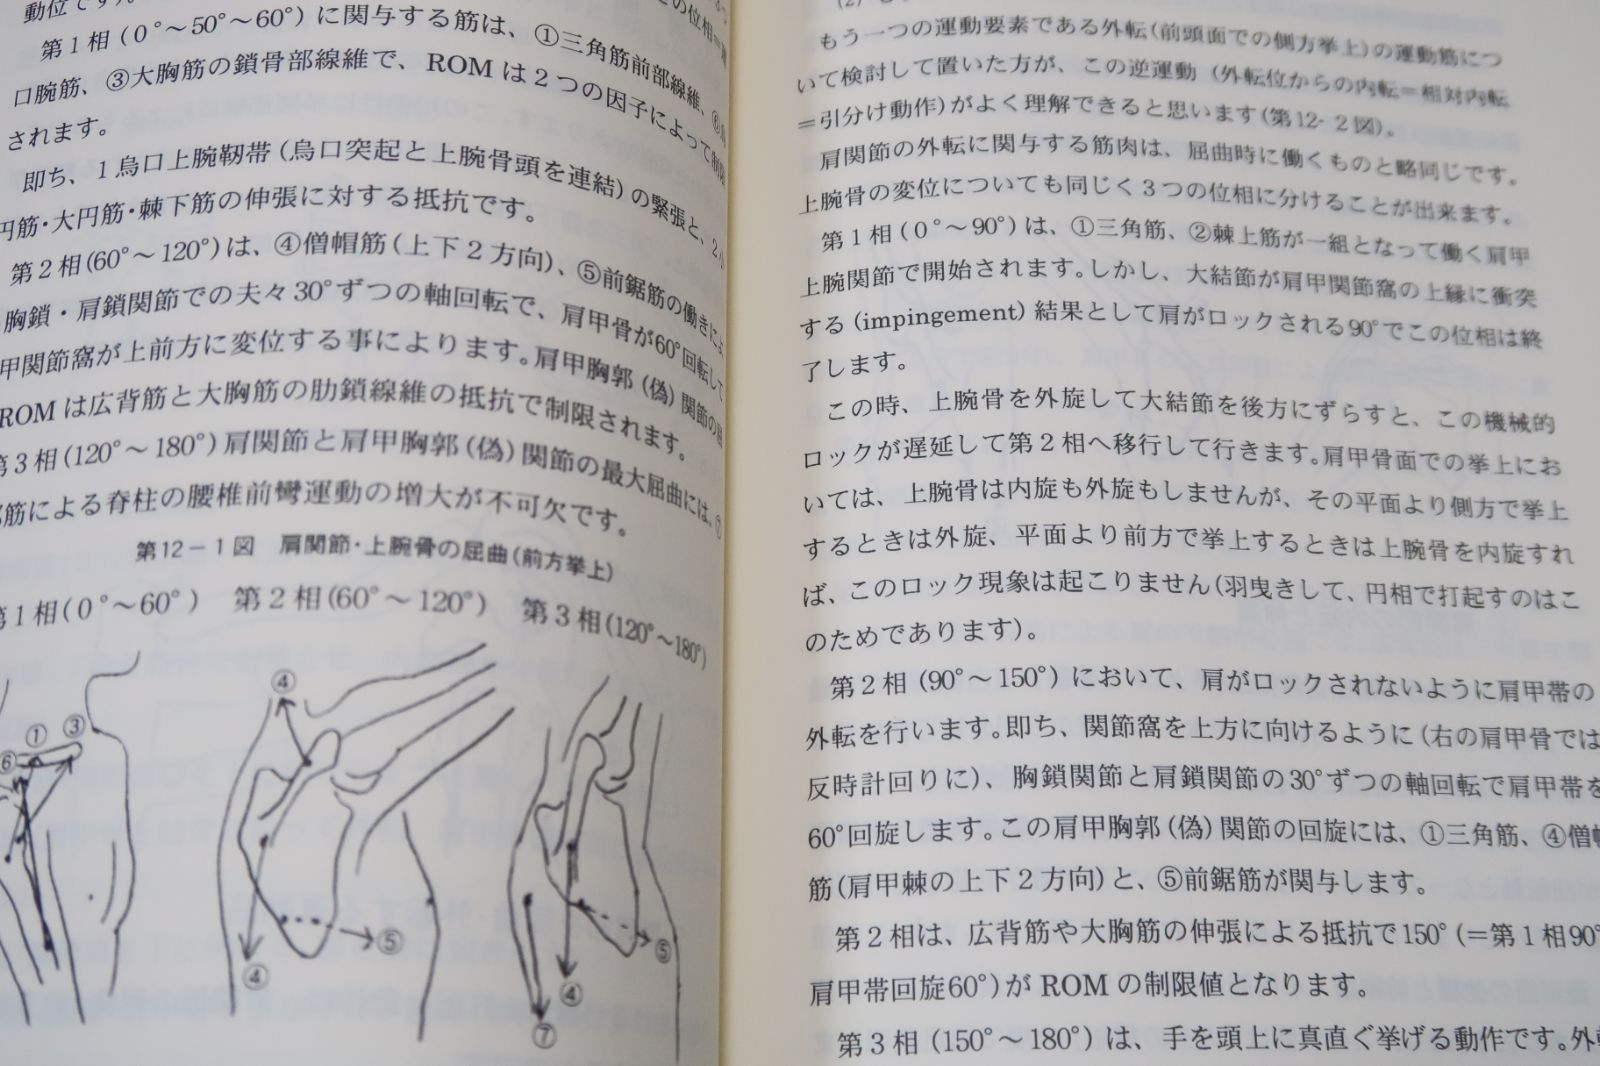 動位です
の位相＝
第1相(0°～50°～60°)に関与する筋は、①三角筋前部線維、⑥
口腕筋、③大胸筋の鎖骨部線維で、ROMは2つの因子によって制限
されます。
即ち、1烏口上腕靭帯(烏口突起と上腕骨頭を連結)の緊張と、2小
円筋・大円筋・棘下筋の伸張に対する抵抗です。
第2相(60°～120°)は、④僧帽筋(上下2方向)、⑤前鋸筋の働きによ
胸鎖・肩鎖関節での夫々30°ずつの軸回転で、肩甲骨が60°回転して
甲関節窩が上前方に変位する事によります。肩甲胸郭(偽)関節の
ROMは広背筋と大胸筋の肋鎖線維の抵抗で制限されます。
第3相(120°～180°)肩関節と肩甲胸郭(偽)関節の最大屈曲には、⑦
筋による脊柱の腰椎前彎運動の増大が不可欠です。
第12－1図　肩関節・上腕骨の屈曲(前方挙上)
第1相(0°～60°)　第2相(60°～120°)　第3相(120°～180°)
① ③ ⑥
④ ④ ⑤
④ ⑤ ⑦
(2)
もう一つの運動要素である外転(前頭面での側方挙上)の運動筋につ
いて検討して置いた方が、この逆運動(外転位からの内転＝相対内転
＝引分け動作)がよく理解できると思います(第12-2図)。
肩関節の外転に関与する筋肉は、屈曲時に働くものと略同じです。
上腕骨の変位についても同じく3つの位相に分けることが出来ます。
第1相(0°～90°)は、①三角筋、②棘上筋が一組となって働く肩甲
上腕関節で開始されます。しかし、大結節が肩甲関節窩の上縁に衝突
する(impingement)結果として肩がロックされる90°でこの位相は終
了します。
この時、上腕骨を外旋して大結節を後方にずらすと、この機械的
ロックが遅延して第2相へ移行して行きます。肩甲骨面での挙上にお
いては、上腕骨は内旋も外旋もしませんが、その平面より側方で挙上
するときは外旋、平面より前方で挙上するときは上腕骨を内旋すれ
ば、このロック現象は起こりません(羽曳きして、円相で打起すのはこ
のためであります)。
第2相(90°～150°)において、肩がロックされないように肩甲帯の
外転を行います。即ち、関節窩を上方に向けるように(右の肩甲骨では
反時計回りに)、胸鎖関節と肩鎖関節の30°ずつの軸回転で肩甲帯を
60°回旋します。この肩甲胸郭(偽)関節の回旋には、①三角筋、④僧帽
筋(肩甲棘の上下2方向)と、⑤前鋸筋が関与します。
第2相は、広背筋や大胸筋の伸張による抵抗で150°(＝第1相90°
肩甲帯回旋60°)がROMの制限値となります。
第3相(150°～180°)は、手を頭上に真直ぐ挙げる動作です。外転